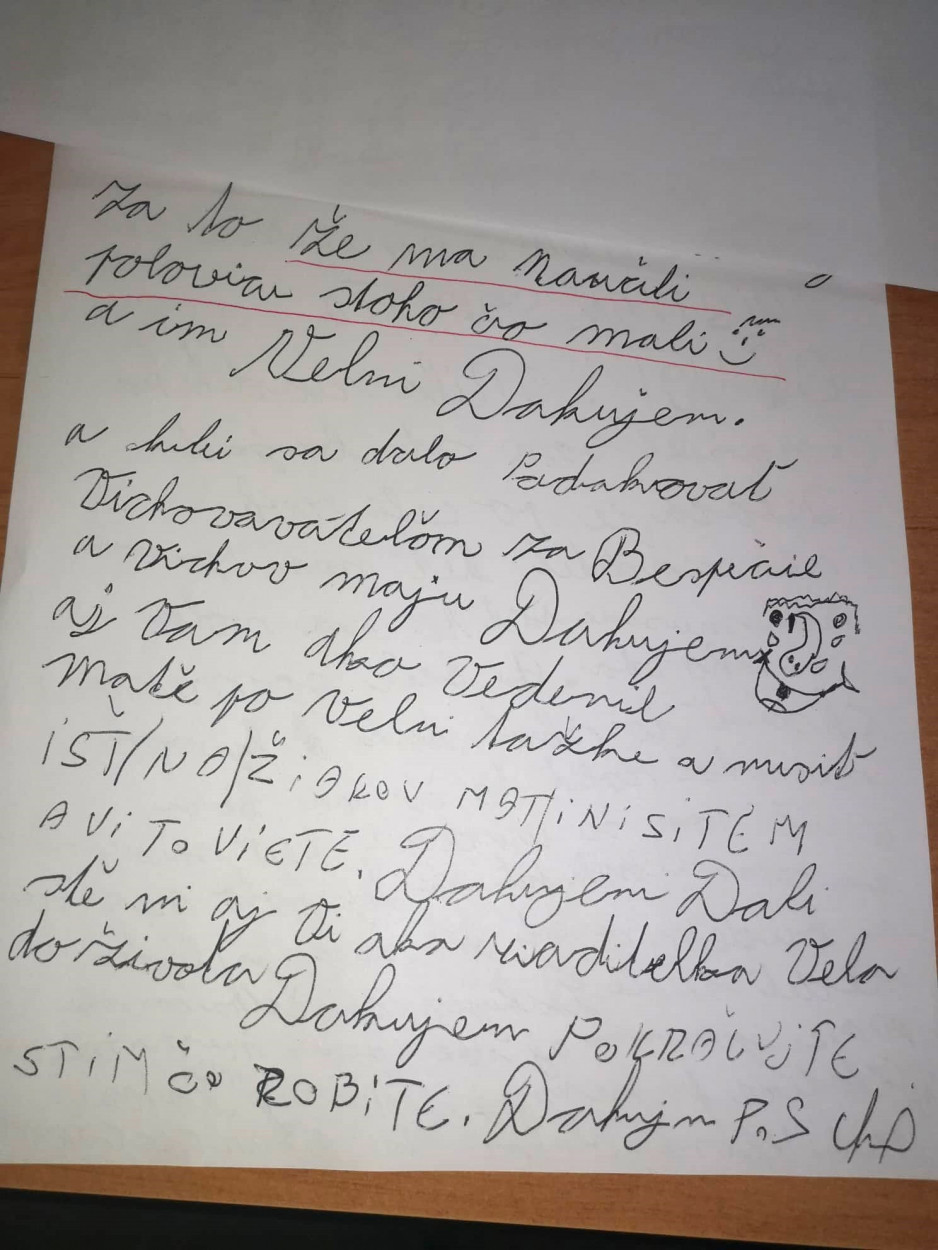 Za to že ma naučili
polovicu stoho čo mali
a im Velmi Dakujem.
a sa dalo Padakovať
Vichovavateľom za Bespečie
a vichov maju Dakujem
aj Vam ako Vedenie
Matě po Velmi tažke a musit
iST/NA/ŽiAKOV MATiNiSiTEM
A Vi To ViETE. Dakujem Dali
stě mi aj Vi ako riaditelka Vela
do života Dakujem POKRAČUJTE
STiM čo ROBiTE. Dakujm P.S